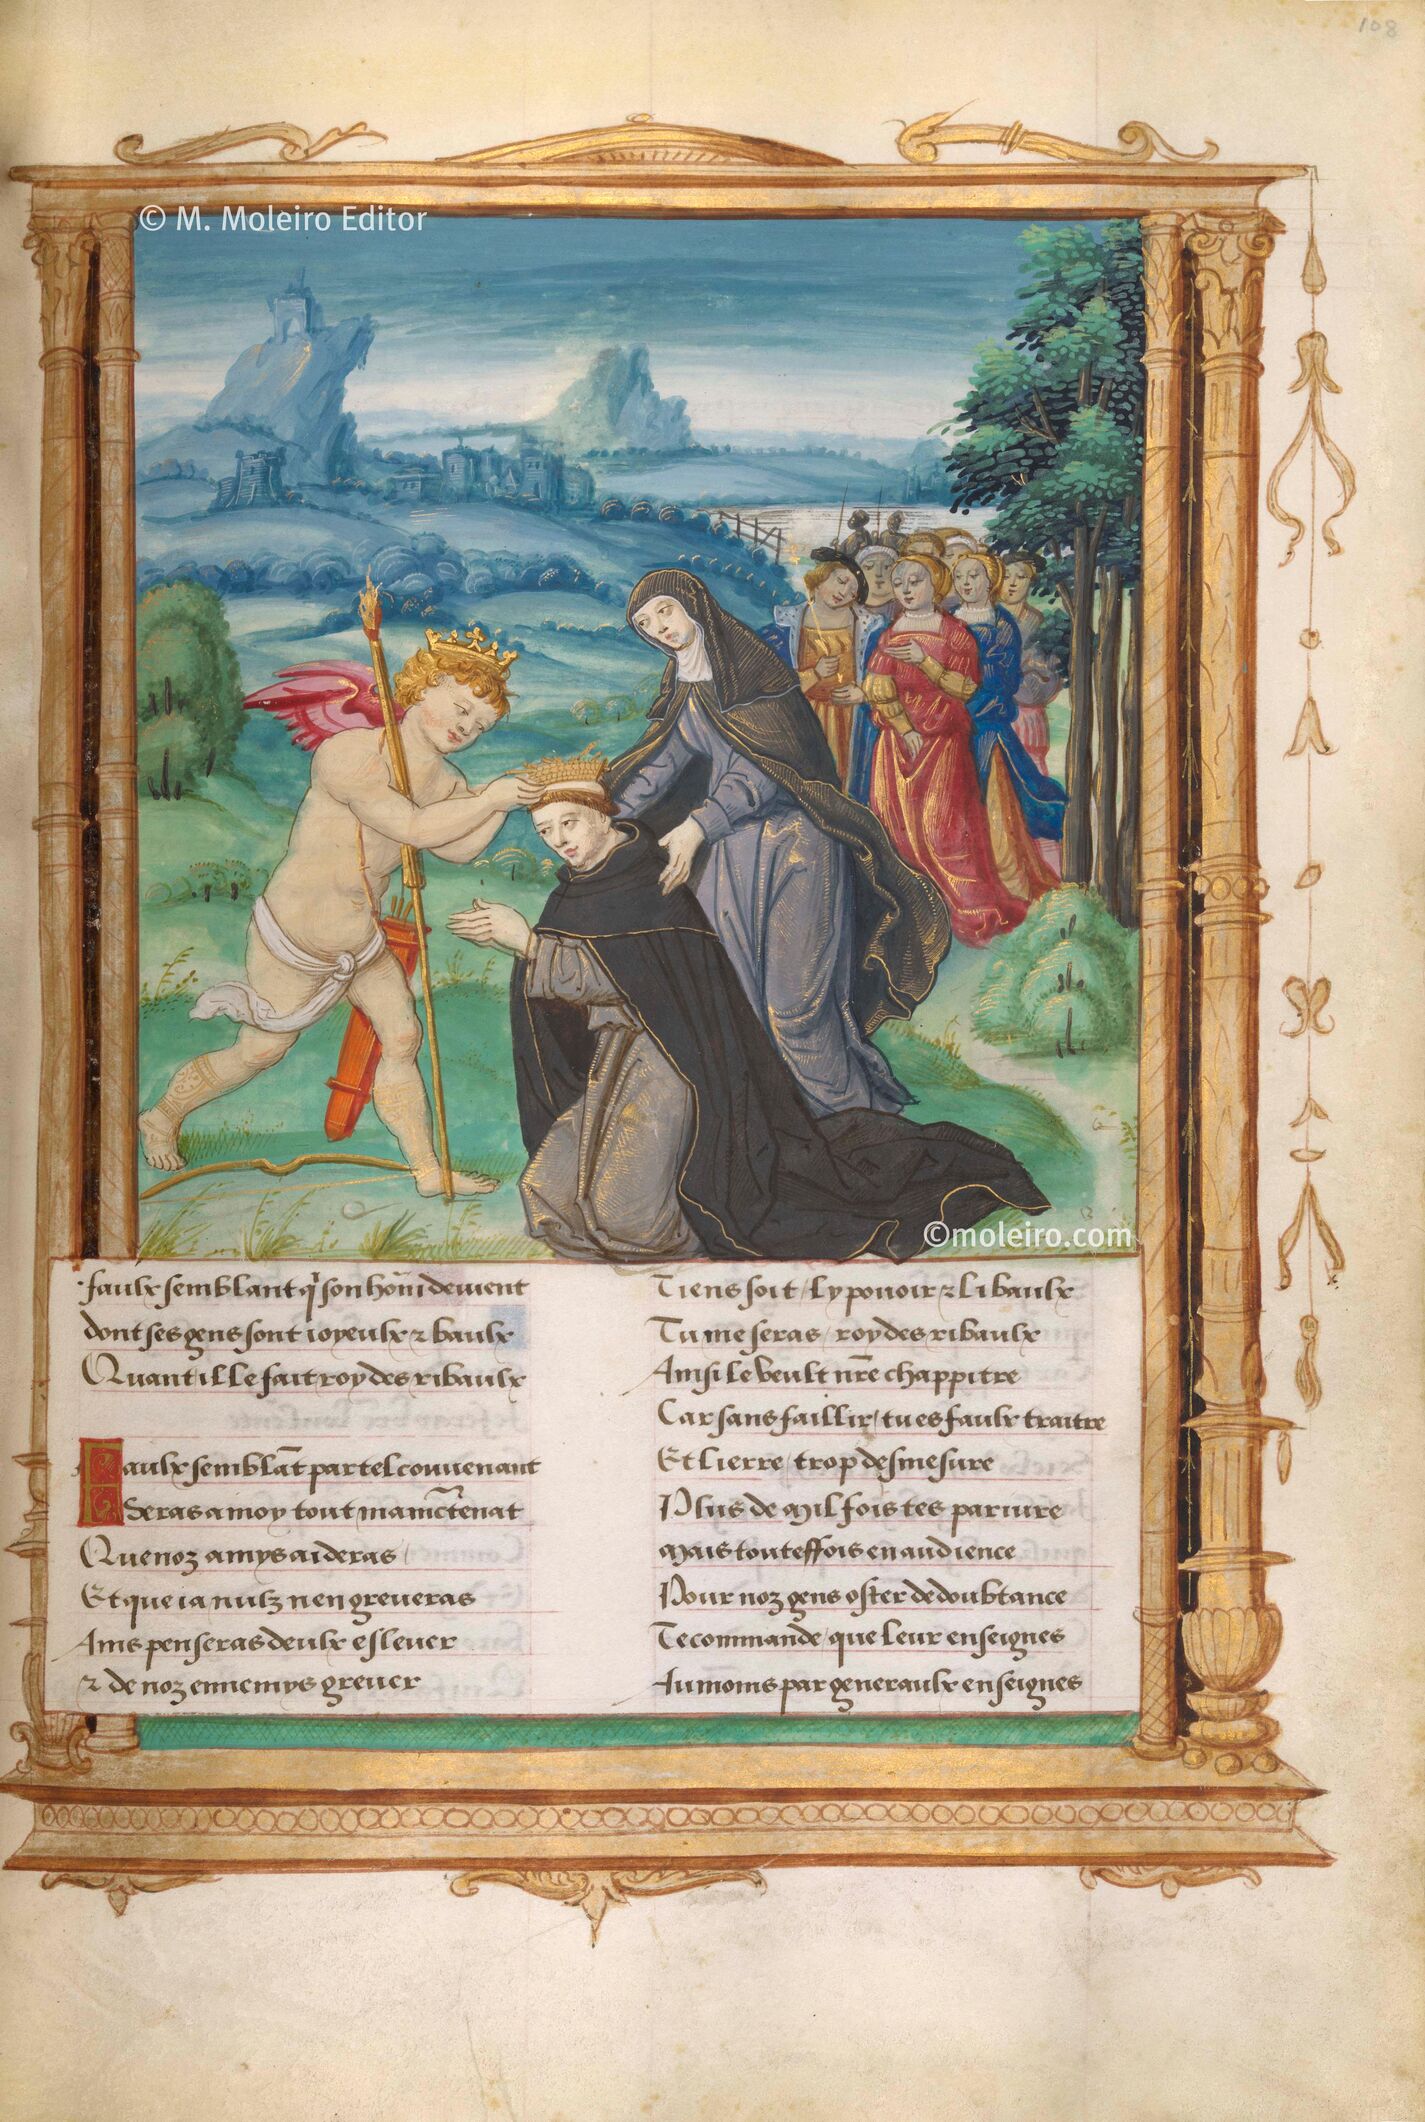 108
© M. Moleiro Editor
©moleiro.com
faulx semblant q̄ son hōm̄ devient
dont ses gens sont ioyeulx ⁊ baulx
Quant il le fait roy des ribaulx
Faulx semblāt par tel convenant
Seras a moy tout mainctenāt
Que noz amys aideras
Et que ia nulz nen greveras
Ains penseras deulx eslever
⁊ de noz ennemys grever
Tiens soit / ly povoir ⁊ li baulx
Tu me seras / roy des ribaulx
Ainsi le veult nr̄e chappitre
Car sans faillir / tu es faulx traitre
Et lierre / trop desmesure
Plus de mil fois tes pariure
Mais touteffois en audience
Pour noz gens oster de doubtance
Te commande / que leur enseignes
Au moins par generaulx enseignes